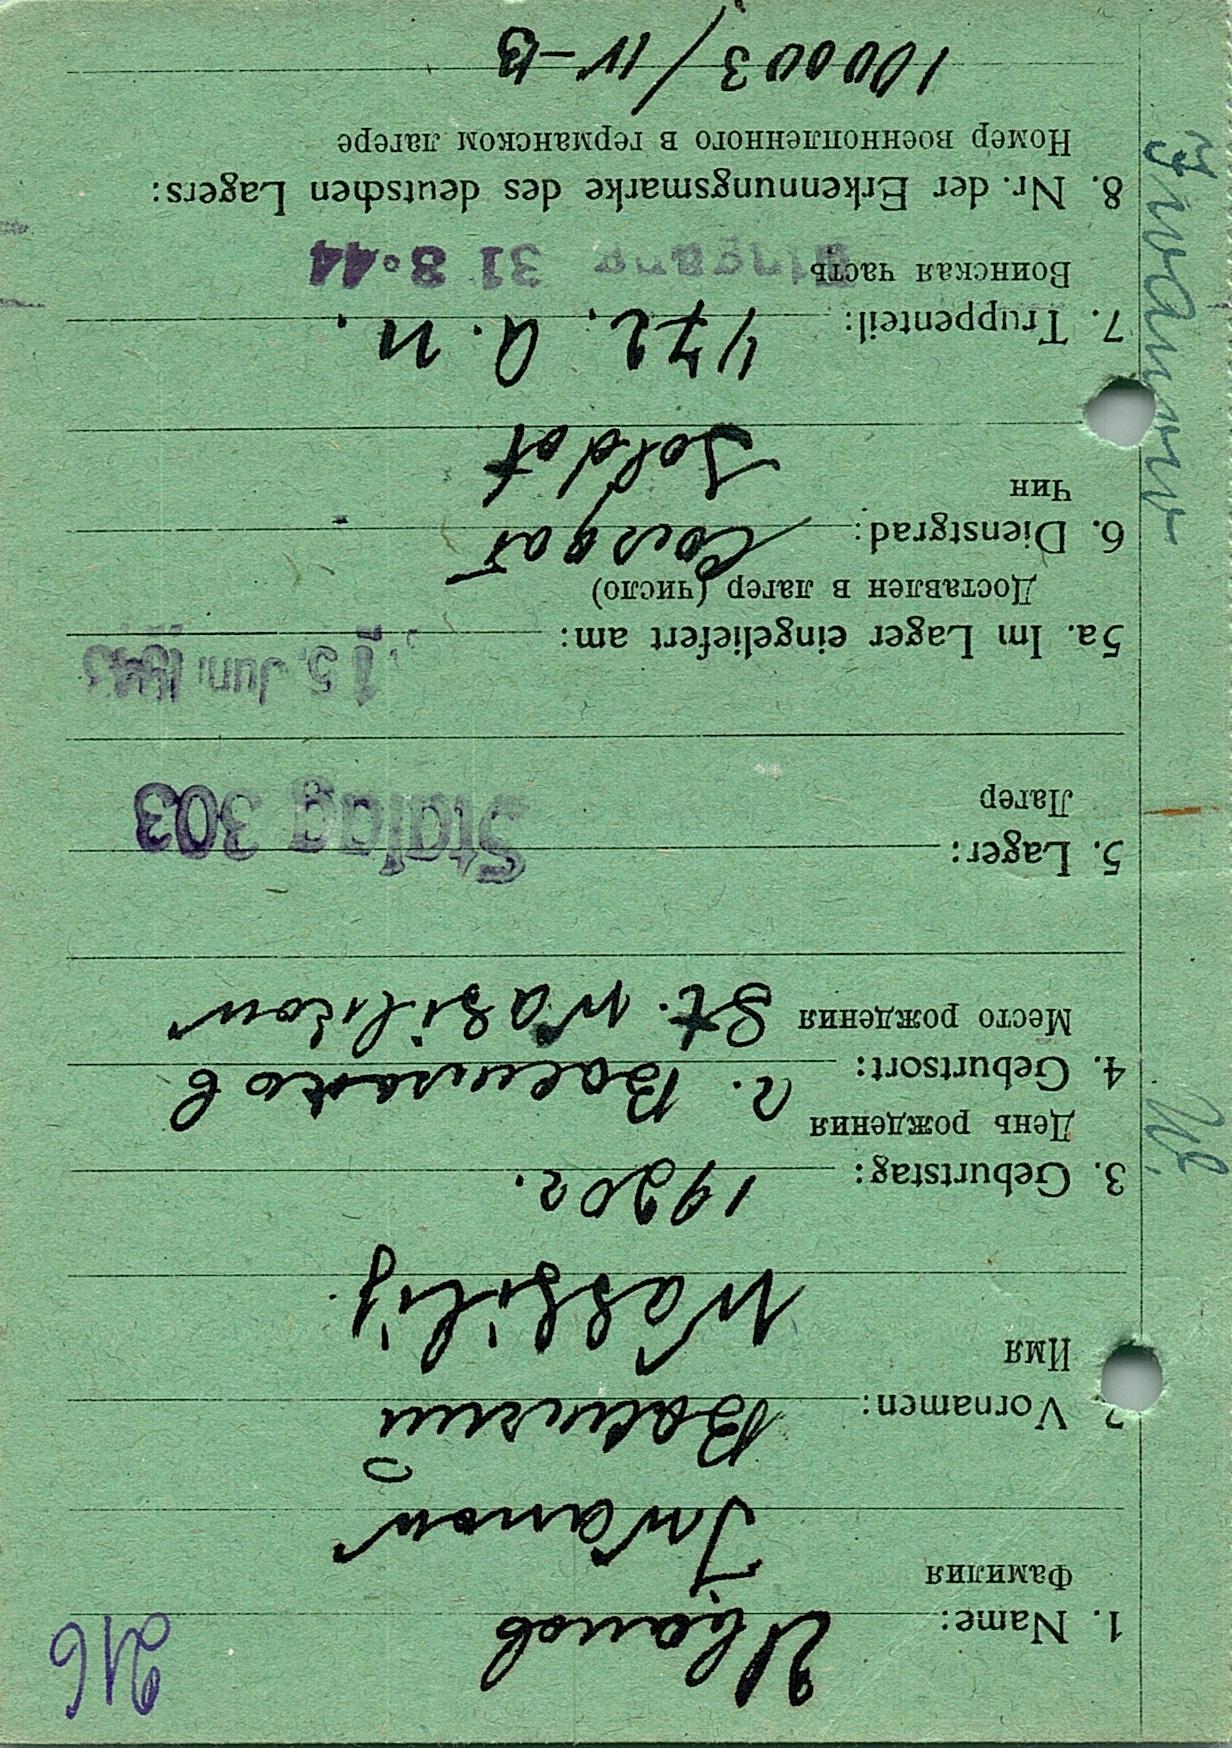 216
1. Name: Иванов
Фамилия
Iwanow
2. Vornamen: Василий
Имя
Wassilij
3. Geburtstag: 1920 г.
День рождения
4. Geburtsort: г. Васильков
Место рождения St. Wasilkow
5. Lager: Stalag 303
Лагерь
5a. Im Lager eingeliefert am: 15. Juni 1943
Доставлен в лагерь (число)
6. Dienstgrad: Солдат
Чин
Soldat
7. Truppenteil: 472. а. п.
Воинская часть
Eingang 31 8.44
8. Nr. der Erkennungsmarke des deutschen Lagers:
Номер военнопленного в германском лагере
10003/IV-B
W.
Iwanow